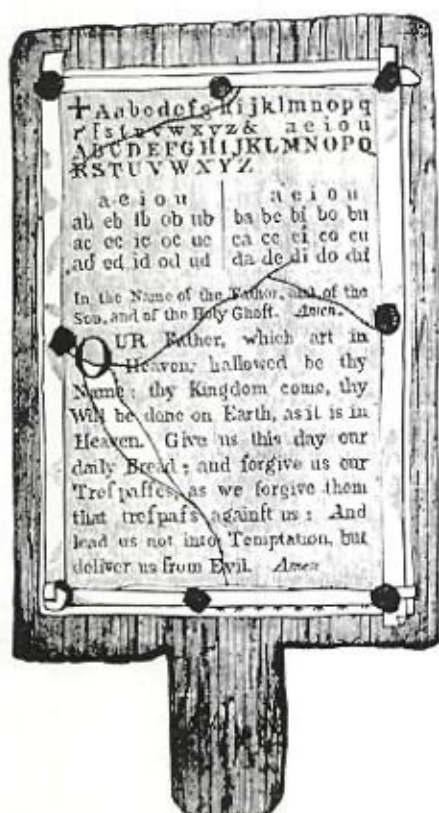 ✚Aabcdefghijklmnopq
rſstuvwxyz& aeiou
ABCDEFGHIJKLMNOPQ
RSTUVWXYZ
a e i o u a e i o u
ab eb ib ob ub ba be bi bo bu
ac ec ic oc uc ca ce ci co cu
ad ed id od ud da de di do du
In the Name of the Father, and of the
Son, and of the Holy Ghoſt. Amen.
OUR Father, which art in
Heaven, hallowed be thy
Name; thy Kingdom come, thy
Will be done on Earth, as it is in
Heaven. Give us this day our
daily Bread; and forgive us our
Treſpaſſes, as we forgive them
that treſpaſs againſt us: And
lead us not into Temptation, but
deliver us from Evil. Amen